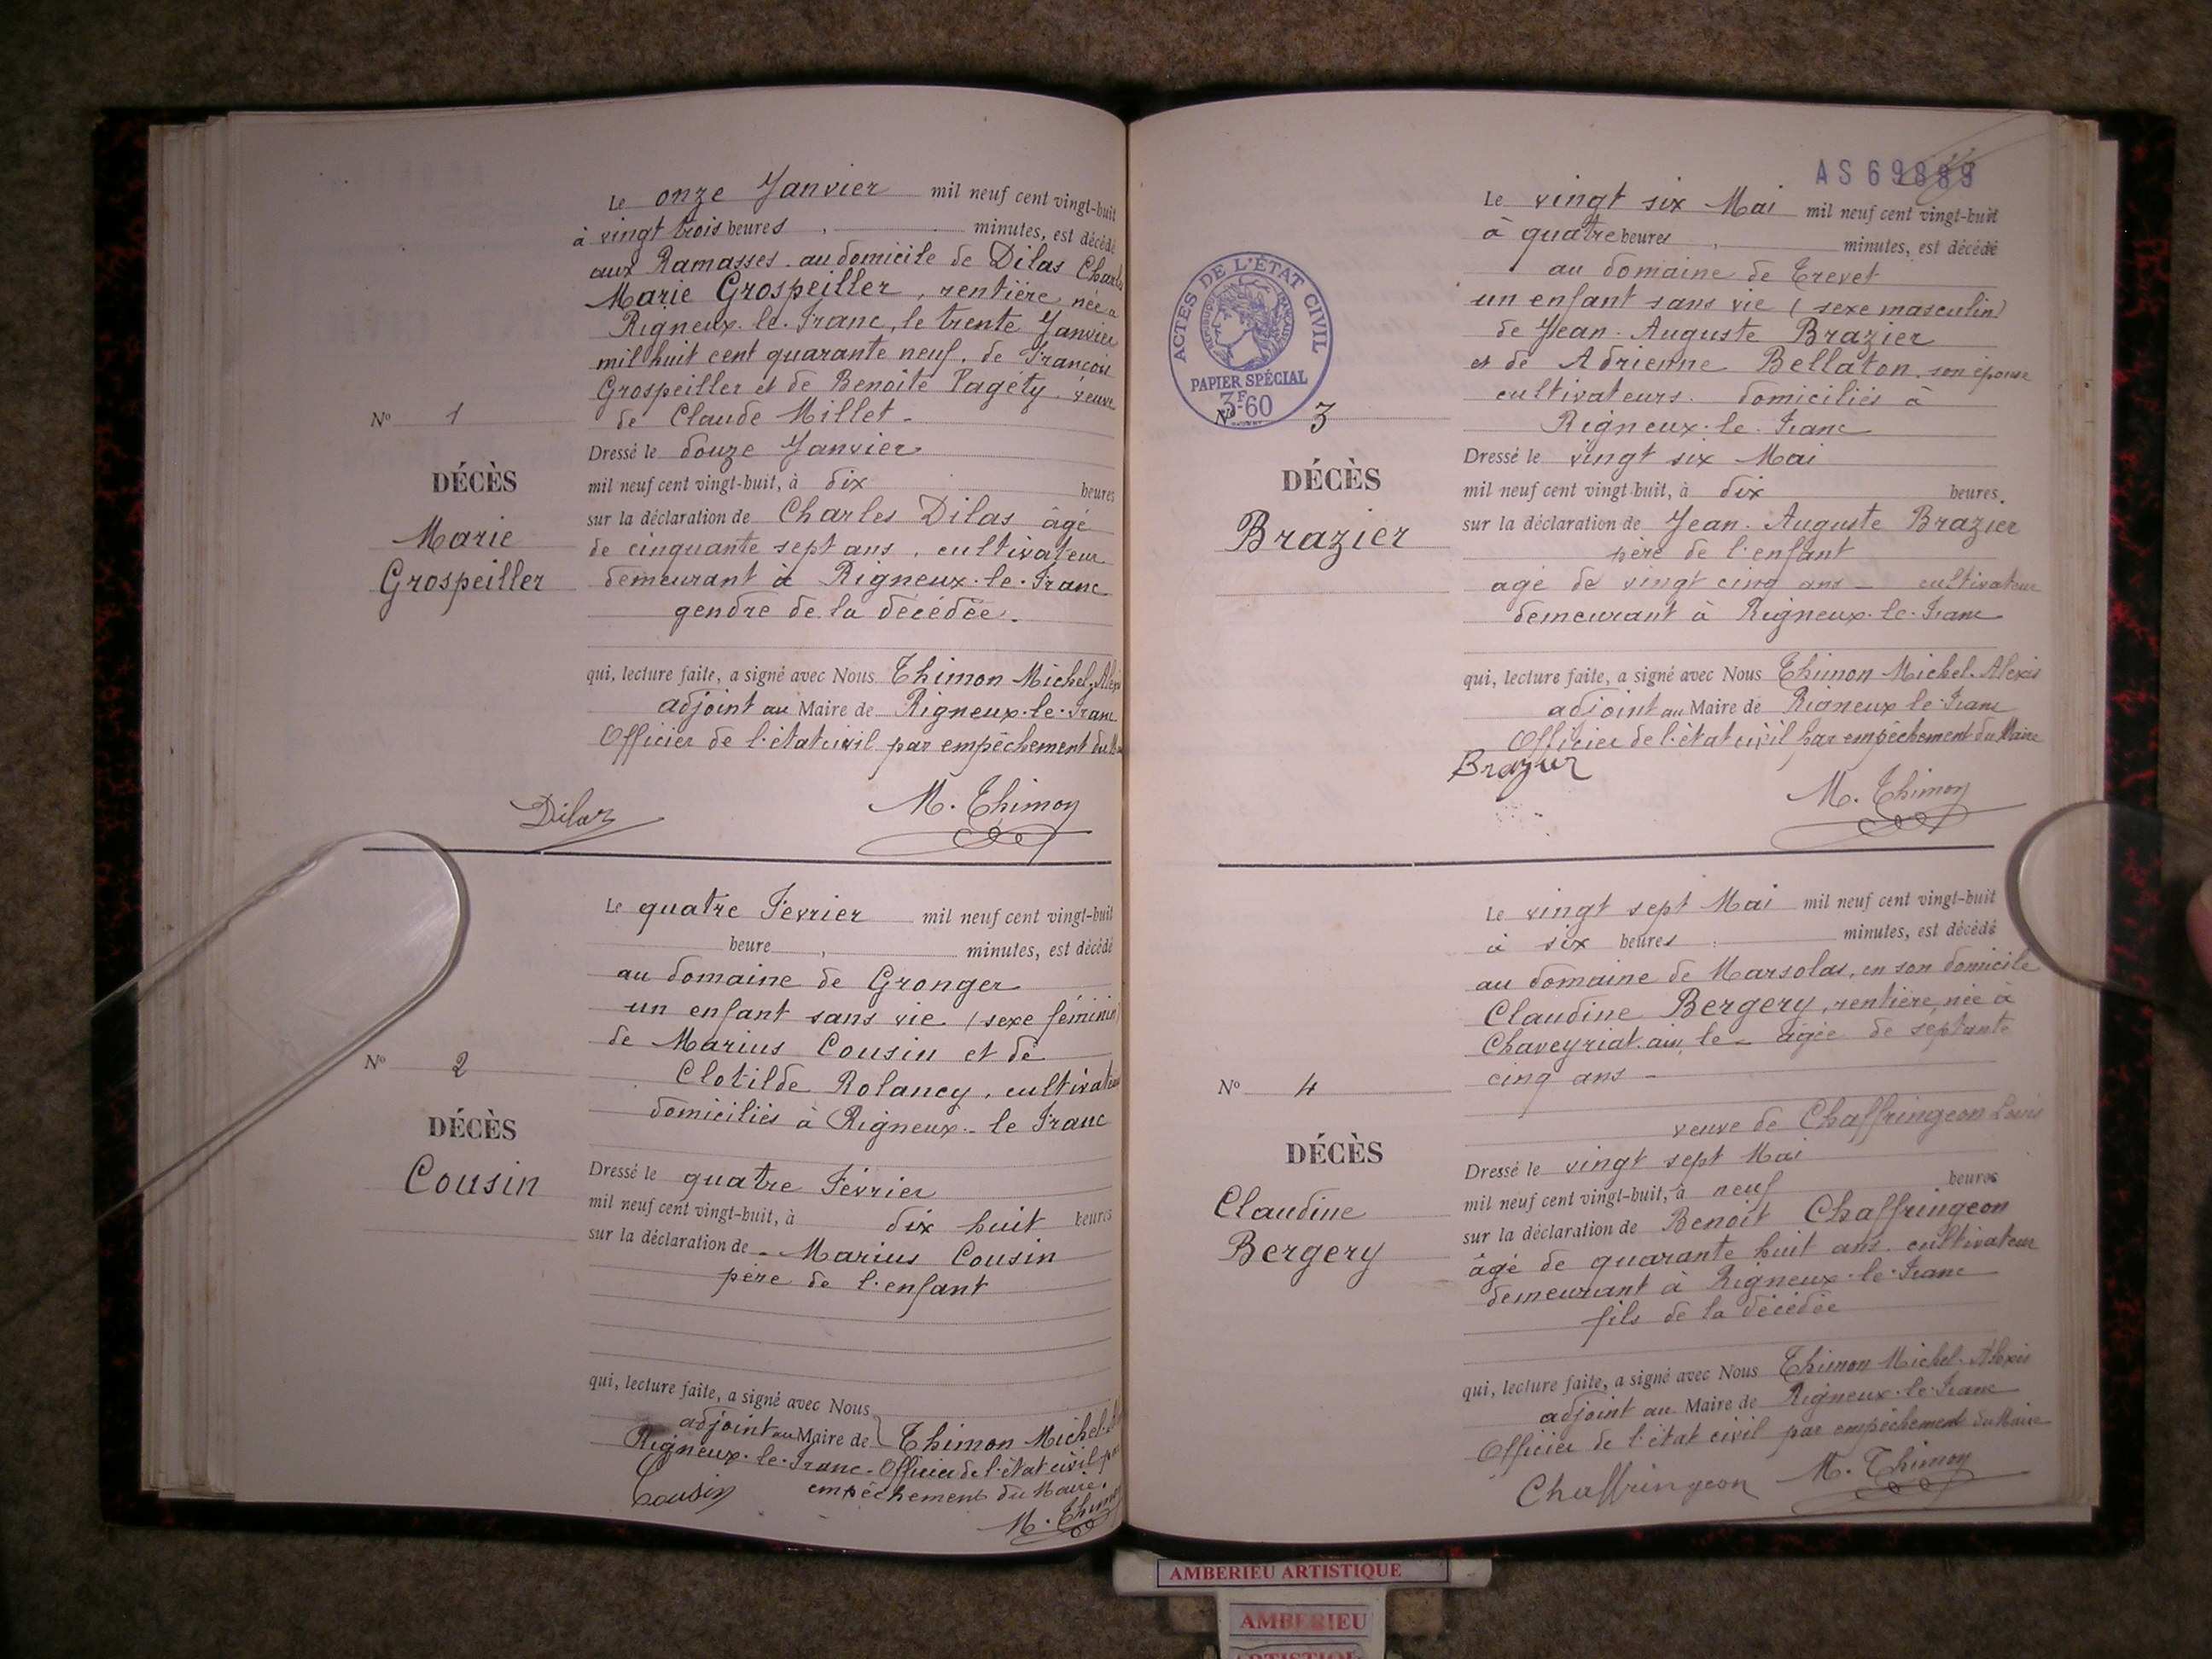 Le onze Janvier mil neuf cent vingt-huit
à vingt trois heures , minutes, est décédé
aux Ramasses au domicile de Dilas Charles
Marie Grospeiller, rentière née à
Rigneux-le-Franc, le trente Janvier
mil huit cent quarante neuf, de François
Grospeiller et de Benoite Pagéty, veuve
de Claude Millet -
N° 1
DÉCÈS
Marie
Grospeiller
Dressé le douze Janvier
mil neuf cent vingt-huit, à dix heures
sur la déclaration de Charles Dilas âgé
de cinquante sept ans, cultivateur
demeurant à Rigneux-le-Franc
gendre de la décédée.
qui, lecture faite, a signé avec Nous Thimon Michel-Alexis
adjoint au Maire de Rigneux-le-Franc
Officier de l'état civil par empêchement du Maire
Dilas M. Thimon
Le quatre Fevrier mil neuf cent vingt-huit
heure , minutes, est décédé
au domaine de Gronger
un enfant sans vie (sexe féminin)
de Marius Cousin et de
Clotilde Rolancy, cultivateurs
domiciliés à Rigneux-le Franc
N° 2
DÉCÈS
Cousin
Dressé le quatre Février
mil neuf cent vingt-huit, à dix huit heures
sur la déclaration de - Marius Cousin
père de l'enfant
qui, lecture faite, a signé avec Nous
adjoint au Maire de Thimon Michel
Rigneux-le-Franc - Officier de l'état civil par
empêchement du Maire.
Cousin M. Thimon
AS 69889
ACTES DE L'ÉTAT CIVIL
RÉPUBLIQUE FRANÇAISE
PAPIER SPÉCIAL
3F60
Le vingt six Mai mil neuf cent vingt-huit
à quatre heures , minutes, est décédé
au domaine de Trevet
un enfant sans vie (sexe masculin)
de Jean-Auguste Brazier
et de Adrienne Bellaton son épouse
cultivateurs domiciliés à
Rigneux-le-Franc
N° 3
DÉCÈS
Brazier
Dressé le vingt six Mai
mil neuf cent vingt-huit, à dix heures.
sur la déclaration de Jean-Auguste Brazier
père de l'enfant
agé de vingt cinq ans - cultivateur
demeurant à Rigneux-le-Franc
qui, lecture faite, a signé avec Nous Thimon Michel-Alexis
adjoint au Maire de Rigneux le Franc
Officier de l'état civil par empêchement du Maire
Brazier M. Thimon
Le vingt sept Mai mil neuf cent vingt-huit
à six heures , minutes, est décédé
au domaine de Marsolas, en son domicile
Claudine Bergery, rentière, née à
Chaveyriat. ain, le - agée de septante
cinq ans -
veuve de Chaffringeon Louis
N° 4
DÉCÈS
Claudine
Bergery
Dressé le vingt sept Mai
mil neuf cent vingt-huit, à neuf heures
sur la déclaration de Benoit Chaffringeon
âgé de quarante huit ans cultivateur
demeurant à Rigneux-le-Franc
fils de la décédée
qui, lecture faite, a signé avec Nous Thimon Michel-Alexis
adjoint au Maire de Rigneux-le-Franc
Officier de l'état civil par empêchement du Maire
Chaffringeon M. Thimon
AMBERIEU ARTISTIQUE
AMBERIEU
ARTISTIQUE